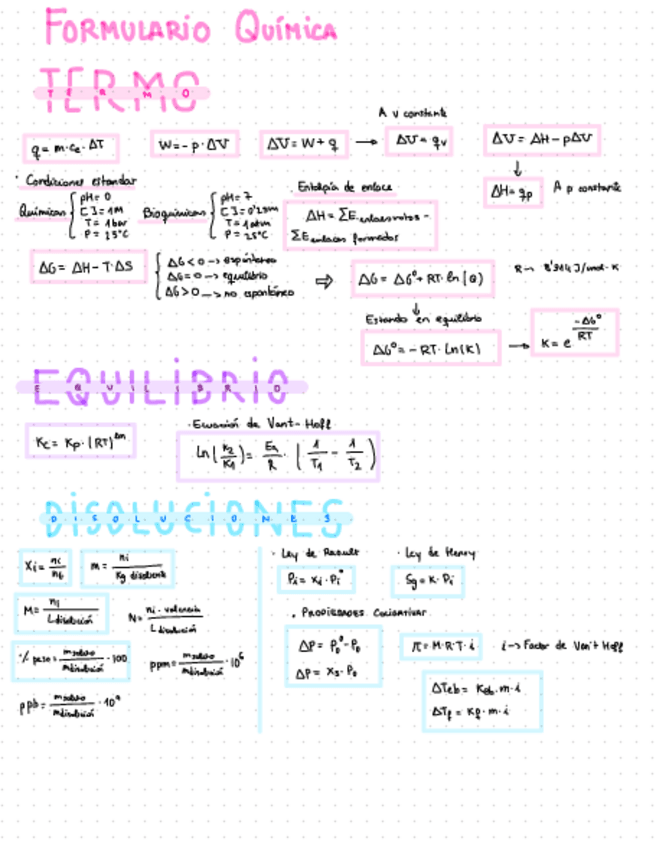 FORMULARIO QUÍMICA
TERMO
T E R M O
A V constante
q = m·ce·ΔT
W = -p·ΔV
ΔU = W + q → ΔU = qv
ΔU = ΔH - pΔV
↓
ΔH = qp A p constante
· Condiciones estandar
Químicas { pH = 0
[ ] = 1M
T = 1bar
P = 25°C
Bioquímicas { pH = 7
T = 1atm
P = 25°C
. Entalpía de enlace
ΔH = ΣE enlaces rotos -
ΣE enlaces formados
ΔG = ΔH - T·ΔS
ΔG < 0 → espontáneo
ΔG = 0 → equilibrio
ΔG > 0 → no espontáneo
⇒ ΔG = ΔG° + RT·ln(Q)
R → 8'314 J/mol·K
↓
Estando en equilibrio
ΔG° = -RT·Ln(K) → K = e^(-ΔG°/RT)
EQUILIBRIO
E Q U I L I B R I O
Kc = Kp·(RT)^Δn
· Ecuación de Vant-Hoff
Ln(K2/K1) = Ea/R · (1/T1 - 1/T2)
DISOLUCIONES
D I S O L U C I O N E S
Xi = ni/nt
m = ni/Kg disolvente
M = ni/L disolución
N = ni·valencia/L disolución
% peso = m soluto/m disolución · 100
ppm = m soluto/m disolución · 10^6
ppb = m soluto/m disolución · 10^9
· Ley de Raoult
Pi = Xi·Pi°
· Ley de Henry
Sg = K·Pi
. PROPIEDADES COLIGATIVAS
ΔP = P0° - P0
ΔP = Xs·P0
π = M·R·T·i
i → Factor de Van't Hoff
ΔTeb = Keb·m·i
ΔTf = Kf·m·i